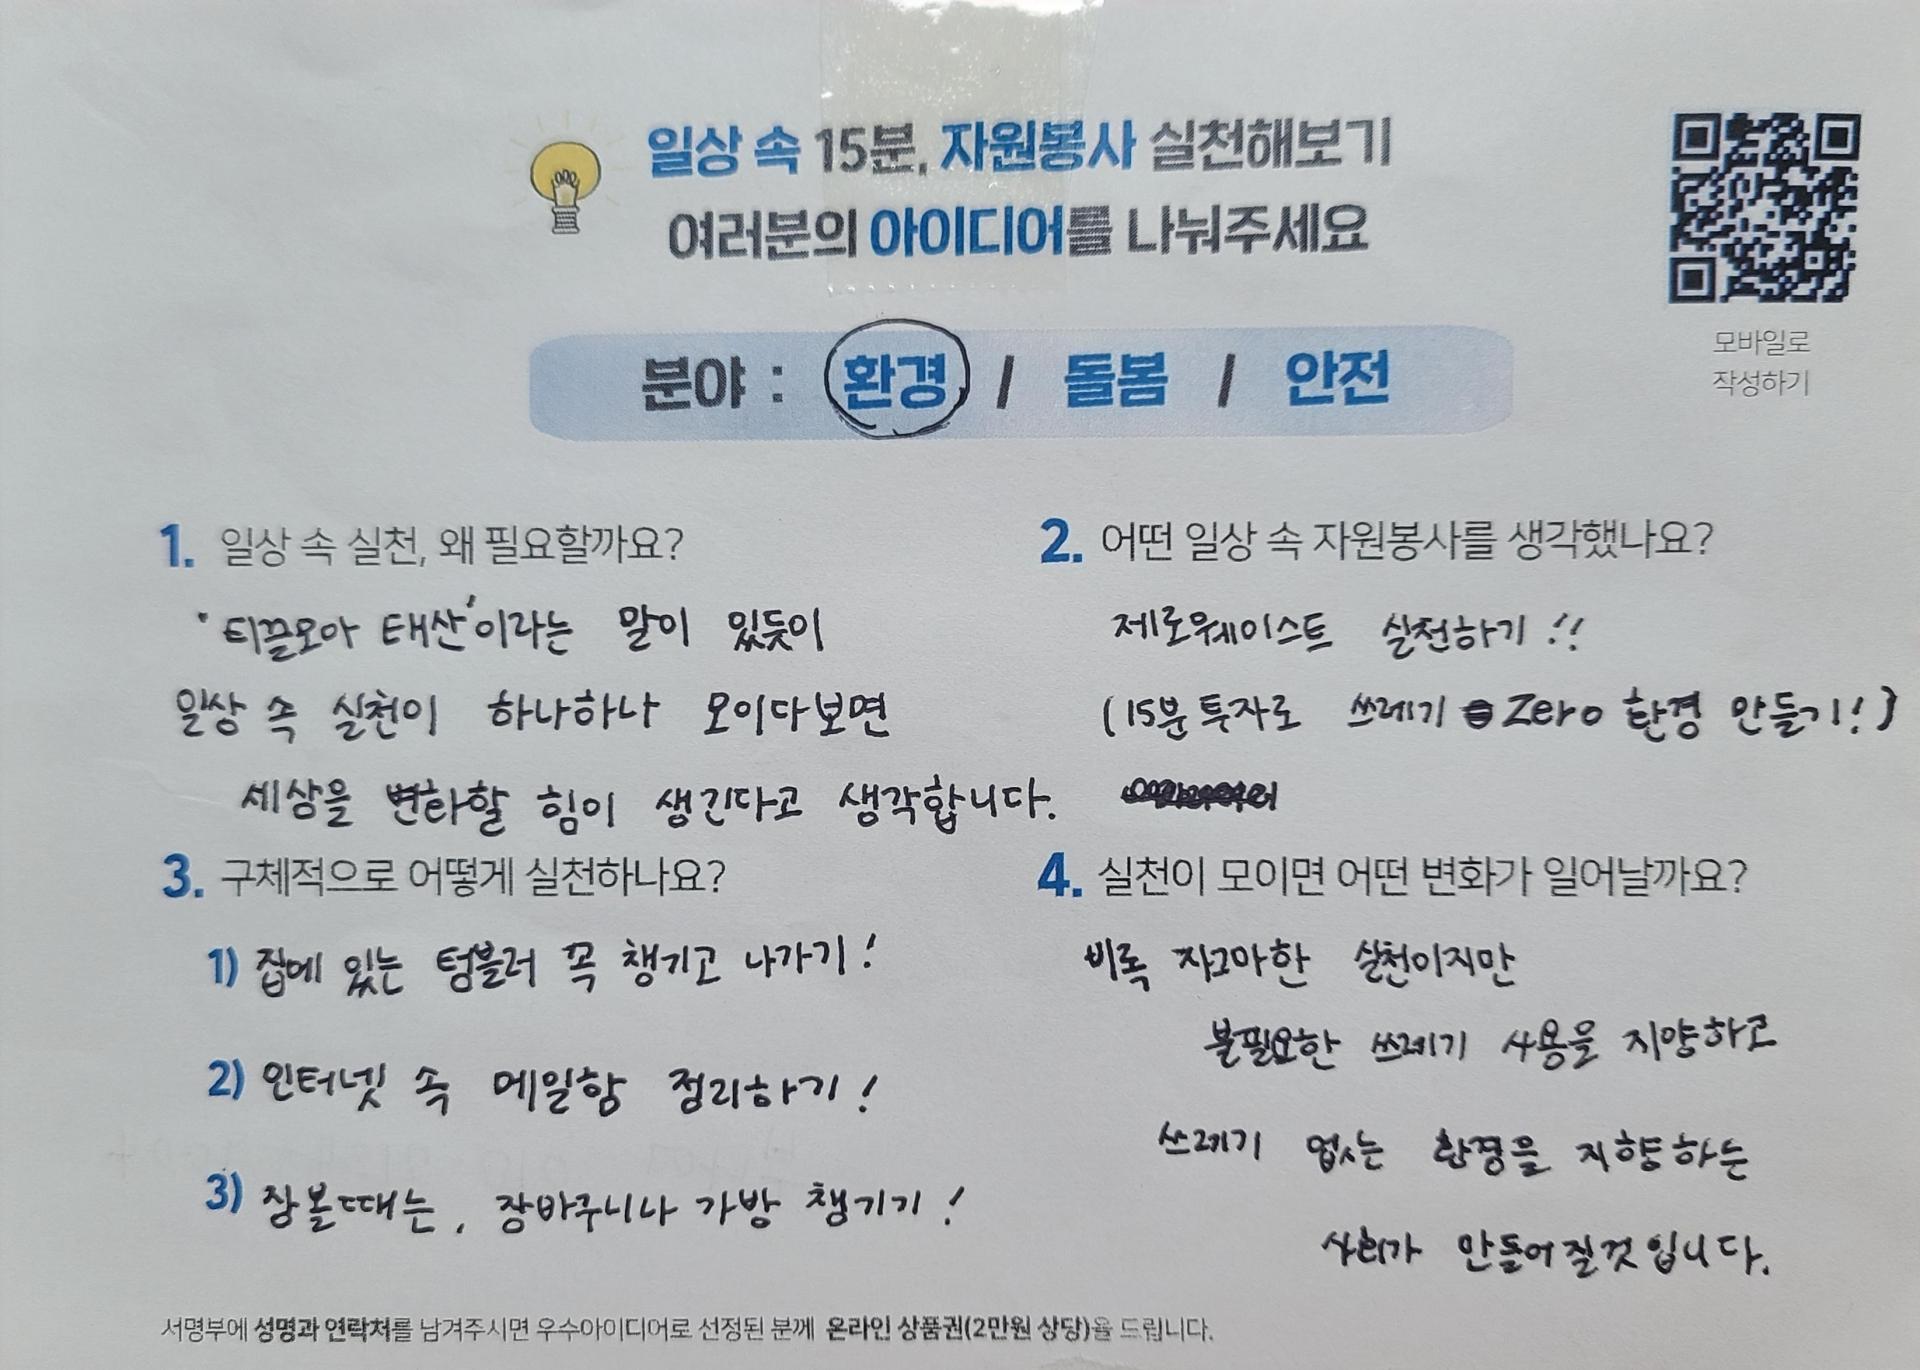 일상 속 15분, 자원봉사 실천해보기
여러분의 아이디어를 나눠주세요
모바일로
작성하기
분야 : 환경 / 돌봄 / 안전
1. 일상 속 실천, 왜 필요할까요?
'티끌모아 태산'이라는 말이 있듯이
일상 속 실천이 하나하나 모이다보면
세상을 변화할 힘이 생긴다고 생각합니다.
2. 어떤 일상 속 자원봉사를 생각했나요?
제로웨이스트 실천하기!!
(15분 투자로 쓰레기 Zero 환경 만들기!)
3. 구체적으로 어떻게 실천하나요?
1) 집에 있는 텀블러 꼭 챙기고 나가기!
2) 인터넷 속 메일함 정리하기!
3) 장볼때는, 장바구니나 가방 챙기기!
4. 실천이 모이면 어떤 변화가 일어날까요?
비록 자그마한 실천이지만
불필요한 쓰레기 사용을 지양하고
쓰레기 없는 환경을 지향하는
사회가 만들어질것입니다.
서명부에 성명과 연락처를 남겨주시면 우수아이디어로 선정된 분께 온라인 상품권(2만원 상당)을 드립니다.